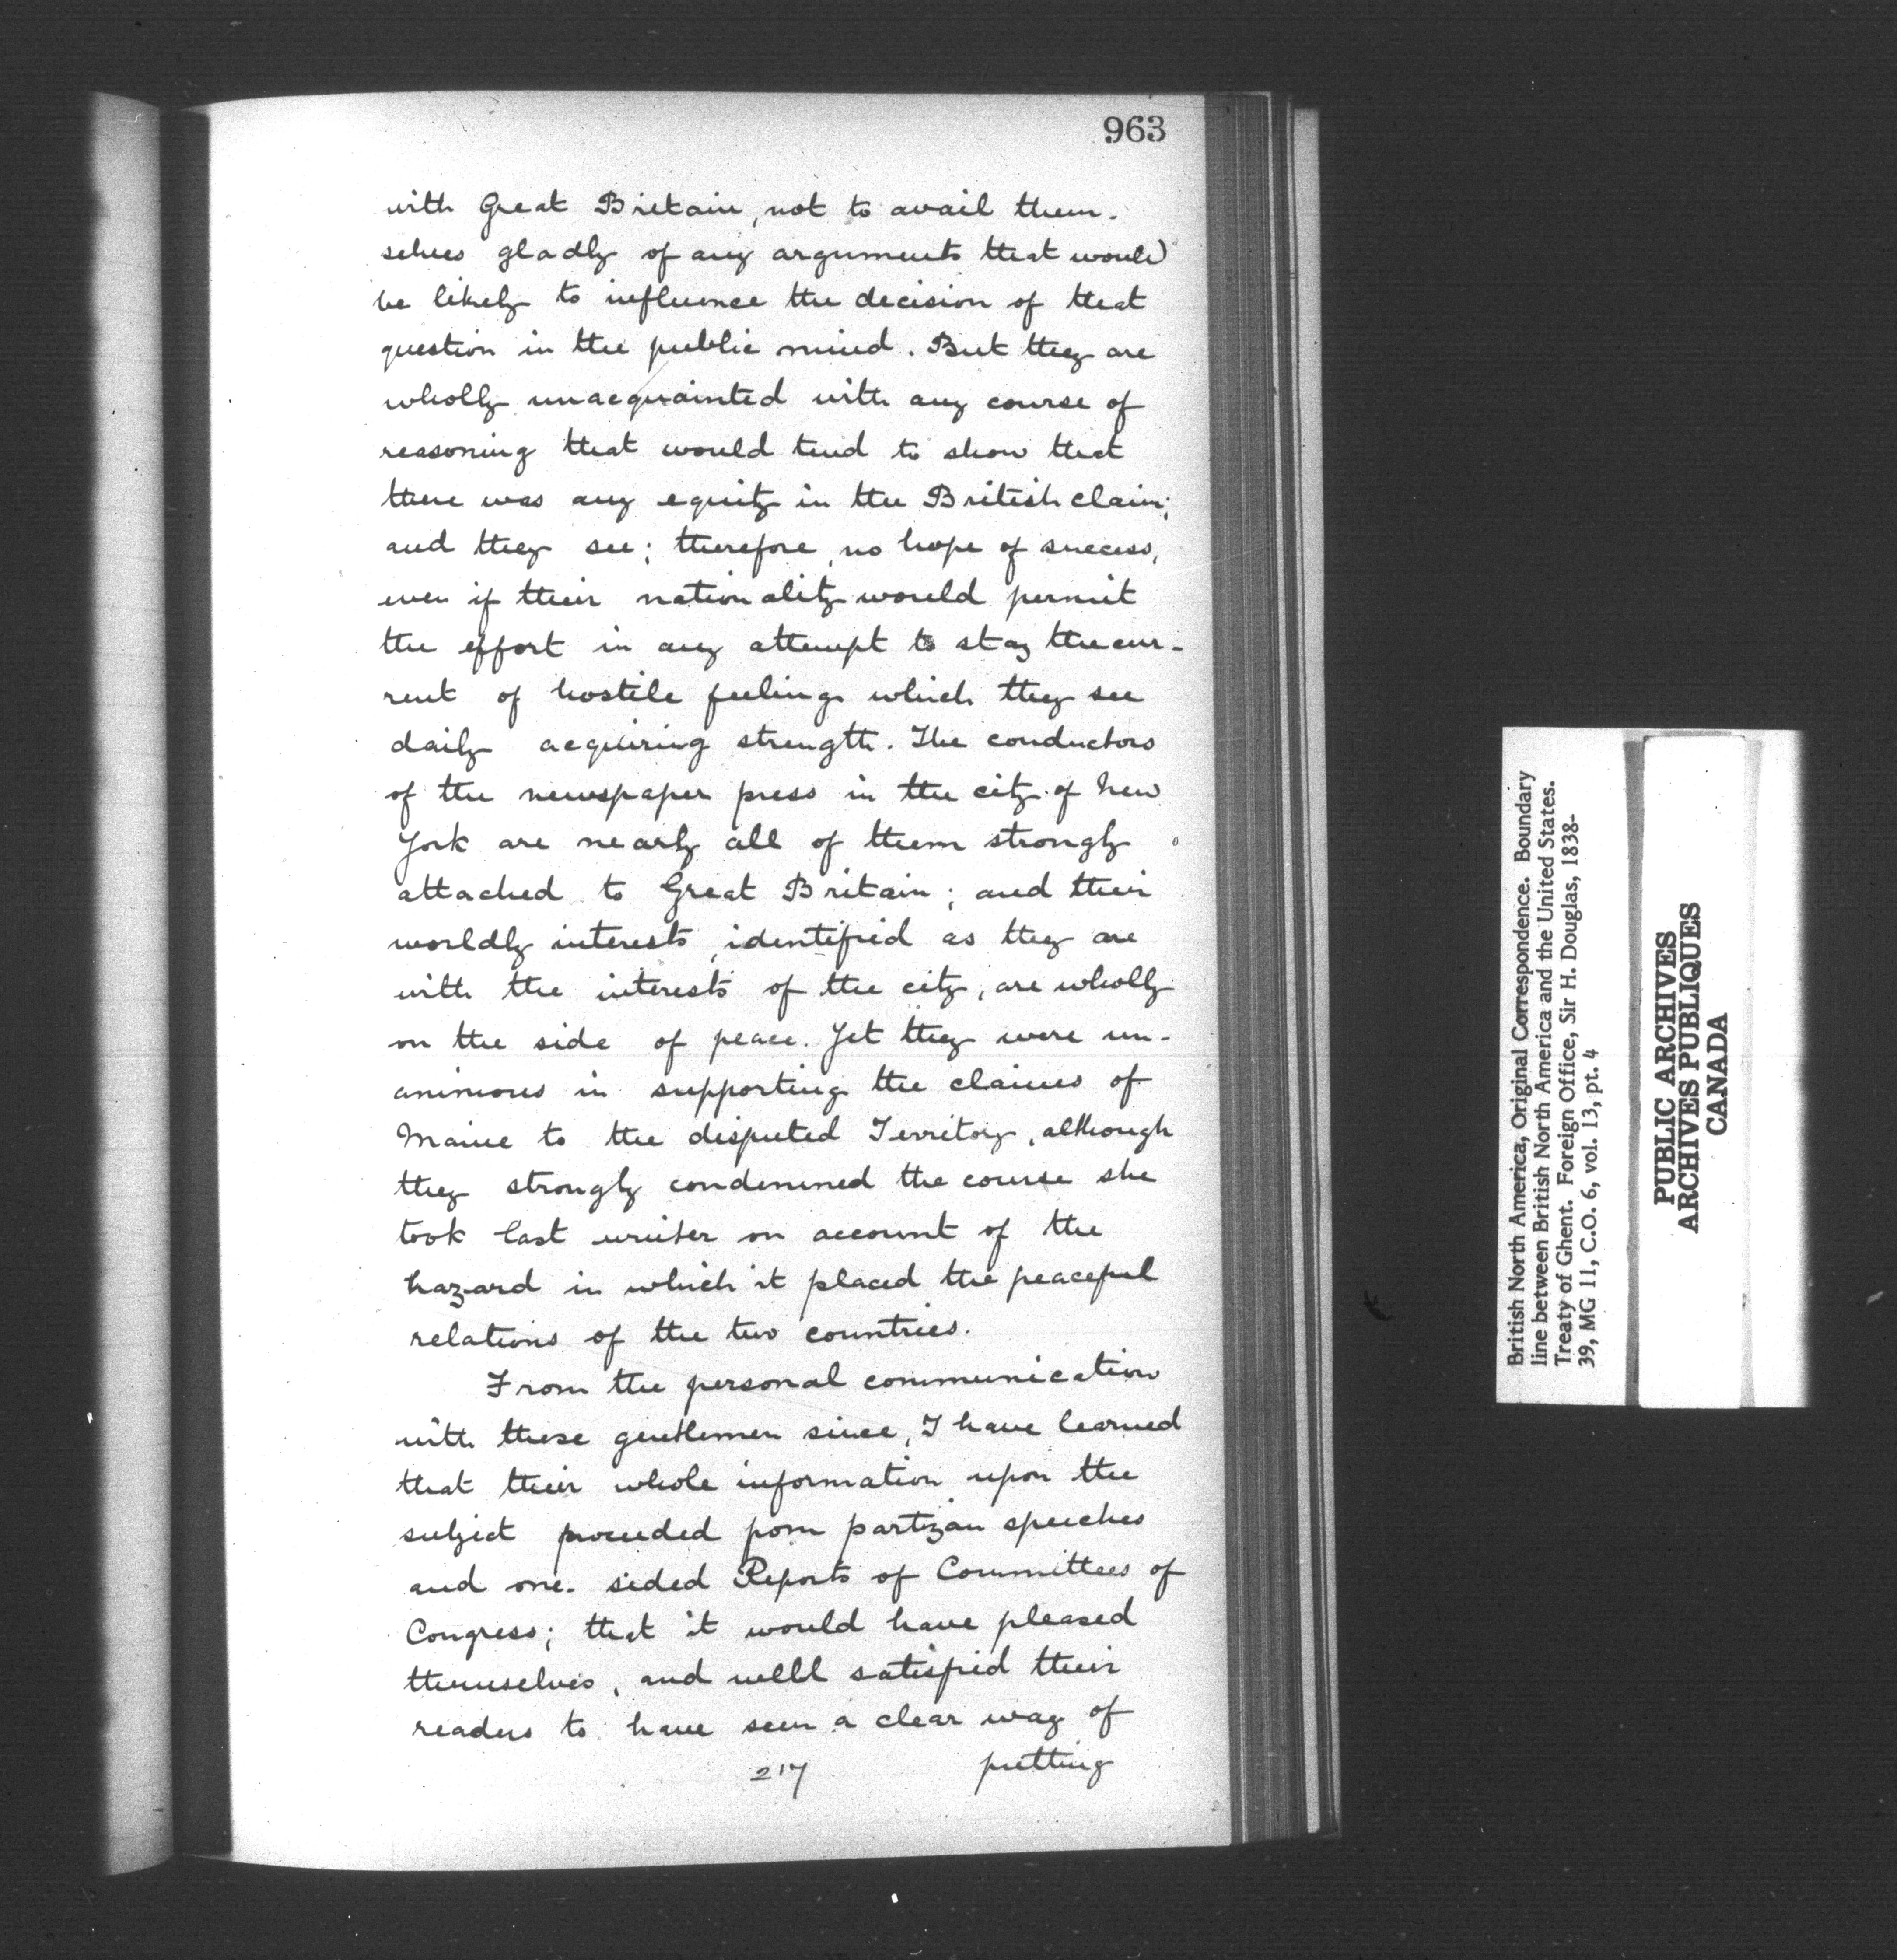 963
with Great Britain, not to avail them-
selves gladly of any arguments that would
be likely to influence the decision of that
question in the public mind. But they are
wholly unacquainted with any course of
reasoning that would tend to show that
there was any equity in the British claim;
and they see; therefore, no hope of success,
even if their nationality would permit
the effort in any attempt to stay the cur-
rent of hostile feelings which they see
daily acquiring strength. The conductors
of the newspaper press in the city of New
York are nearly all of them strongly
attached to Great Britain; and their
worldly interests, identified as they are
with the interests of the city, are wholly
on the side of peace. Yet they were un-
animous in supporting the claims of
Maine to the disputed Territory, although
they strongly condemned the course she
took last winter on account of the
hazard in which it placed the peaceful
relations of the two countries.
From the personal communication
with these gentlemen since, I have learned
that their whole information upon the
subject proceeded from partizan speeches
and one-sided Reports of Committees of
Congress; that it would have pleased
themselves, and well satisfied their
readers to have seen a clear way of
217 putting
British North America, Original Correspondence. Boundary
line between British North America and the United States.
Treaty of Ghent. Foreign Office, Sir H. Douglas, 1838-
39, MG 11, C.O. 6, vol. 13, pt. 4
PUBLIC ARCHIVES
ARCHIVES PUBLIQUES
CANADA